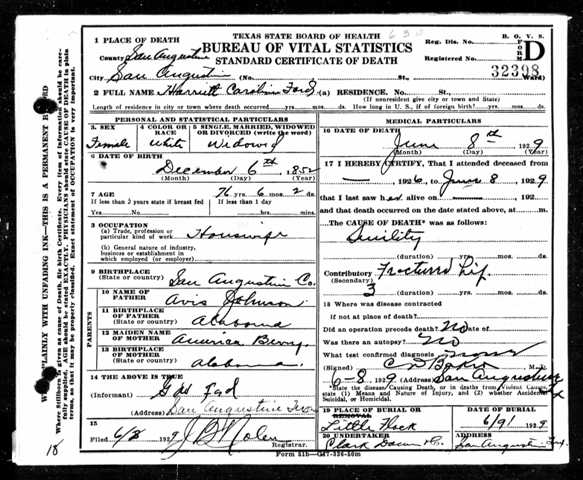 TEXAS STATE BOARD OF HEALTH
BUREAU OF VITAL STATISTICS
STANDARD CERTIFICATE OF DEATH
B. O. V. S.
FORM D
Reg. Dis. No.
Registered No.
32398
1 PLACE OF DEATH
County San Augustine
City San Augustine (No. St., Ward)
2 FULL NAME Harriett Caroline Ford (a) RESIDENCE. No. St.
(If nonresident give city or town and State)
Length of residence in city or town where death occurred yrs. mos. ds. How long in U. S., if of foreign birth? yrs. mos. ds.
PERSONAL AND STATISTICAL PARTICULARS
3. SEX
Female
4 COLOR OR RACE
White
5 SINGLE, MARRIED, WIDOWED OR DIVORCED (write the word)
Widowed
6 DATE OF BIRTH
December 6th, 1852
(Month) (Day) (Year)
7 AGE
76 yrs. 6 mos. 2 ds.
If less than 2 years state if breast fed
If less than 1 day
Yes No hrs. min.
8 OCCUPATION
(a) Trade, profession or particular kind of work Housewife
(b) General nature of industry, business or establishment in which employed (or employer)
9 BIRTHPLACE
(State or country) San Augustine Co.
PARENTS
10 NAME OF FATHER Avis Johnson
11 BIRTHPLACE OF FATHER
(State or country) Alabama
12 MAIDEN NAME OF MOTHER America Berry
13 BIRTHPLACE OF MOTHER
(State or country) Alabama
14 THE ABOVE IS TRUE
(Informant)
(Address) San Augustine Texas
15
Filed 6/8 1929 J B Nolen
18
MEDICAL PARTICULARS
16 DATE OF DEATH
June 8th 1929
(Month) (Day) (Year)
17 I HEREBY CERTIFY, That I attended deceased
from — 1926, to June 8, 1929
that I last saw her alive on 192
and that death occurred on the date stated above, at M.
The CAUSE OF DEATH* was as follows:
Senility
(duration) yrs. mos. ds.
Contributory Fractured Hip
(Secondary)
3 (duration) yrs. mos. ds.
18 Where was disease contracted
if not at place of death?
Did an operation precede death? No Date of
Was there an autopsy? No
What test confirmed diagnosis
(Signed) M. D.
6-8, 1929 (Address) San Augustine
*State the disease Causing Death, or in deaths from Violent Causes, state (1) Means and Nature of Injury, and (2) whether Accidental, Suicidal, or Homicidal.
19 PLACE OF BURIAL OR REMOVAL
Little Flock
DATE OF BURIAL
6/9 1929
20 UNDERTAKER
Clark
ADDRESS
San Augustine, Tex.
Form 21b—G47-326-50m